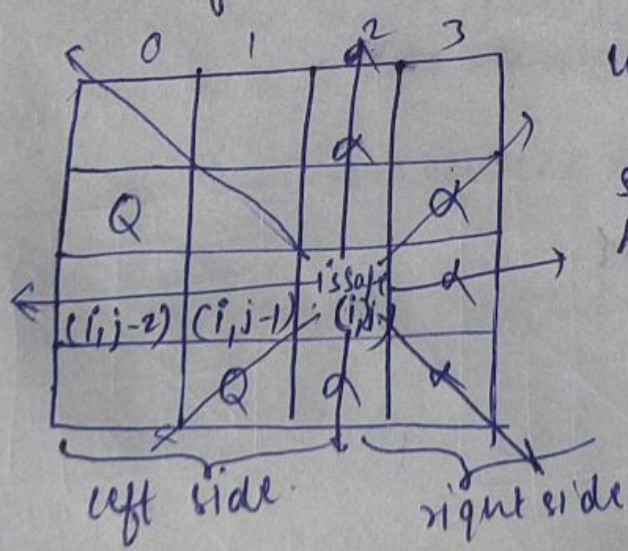 0 1 2 3
α
α α
Q α
issafe
(i,j-2) (i,j-1) (i,j)
Q α α
left side. right side